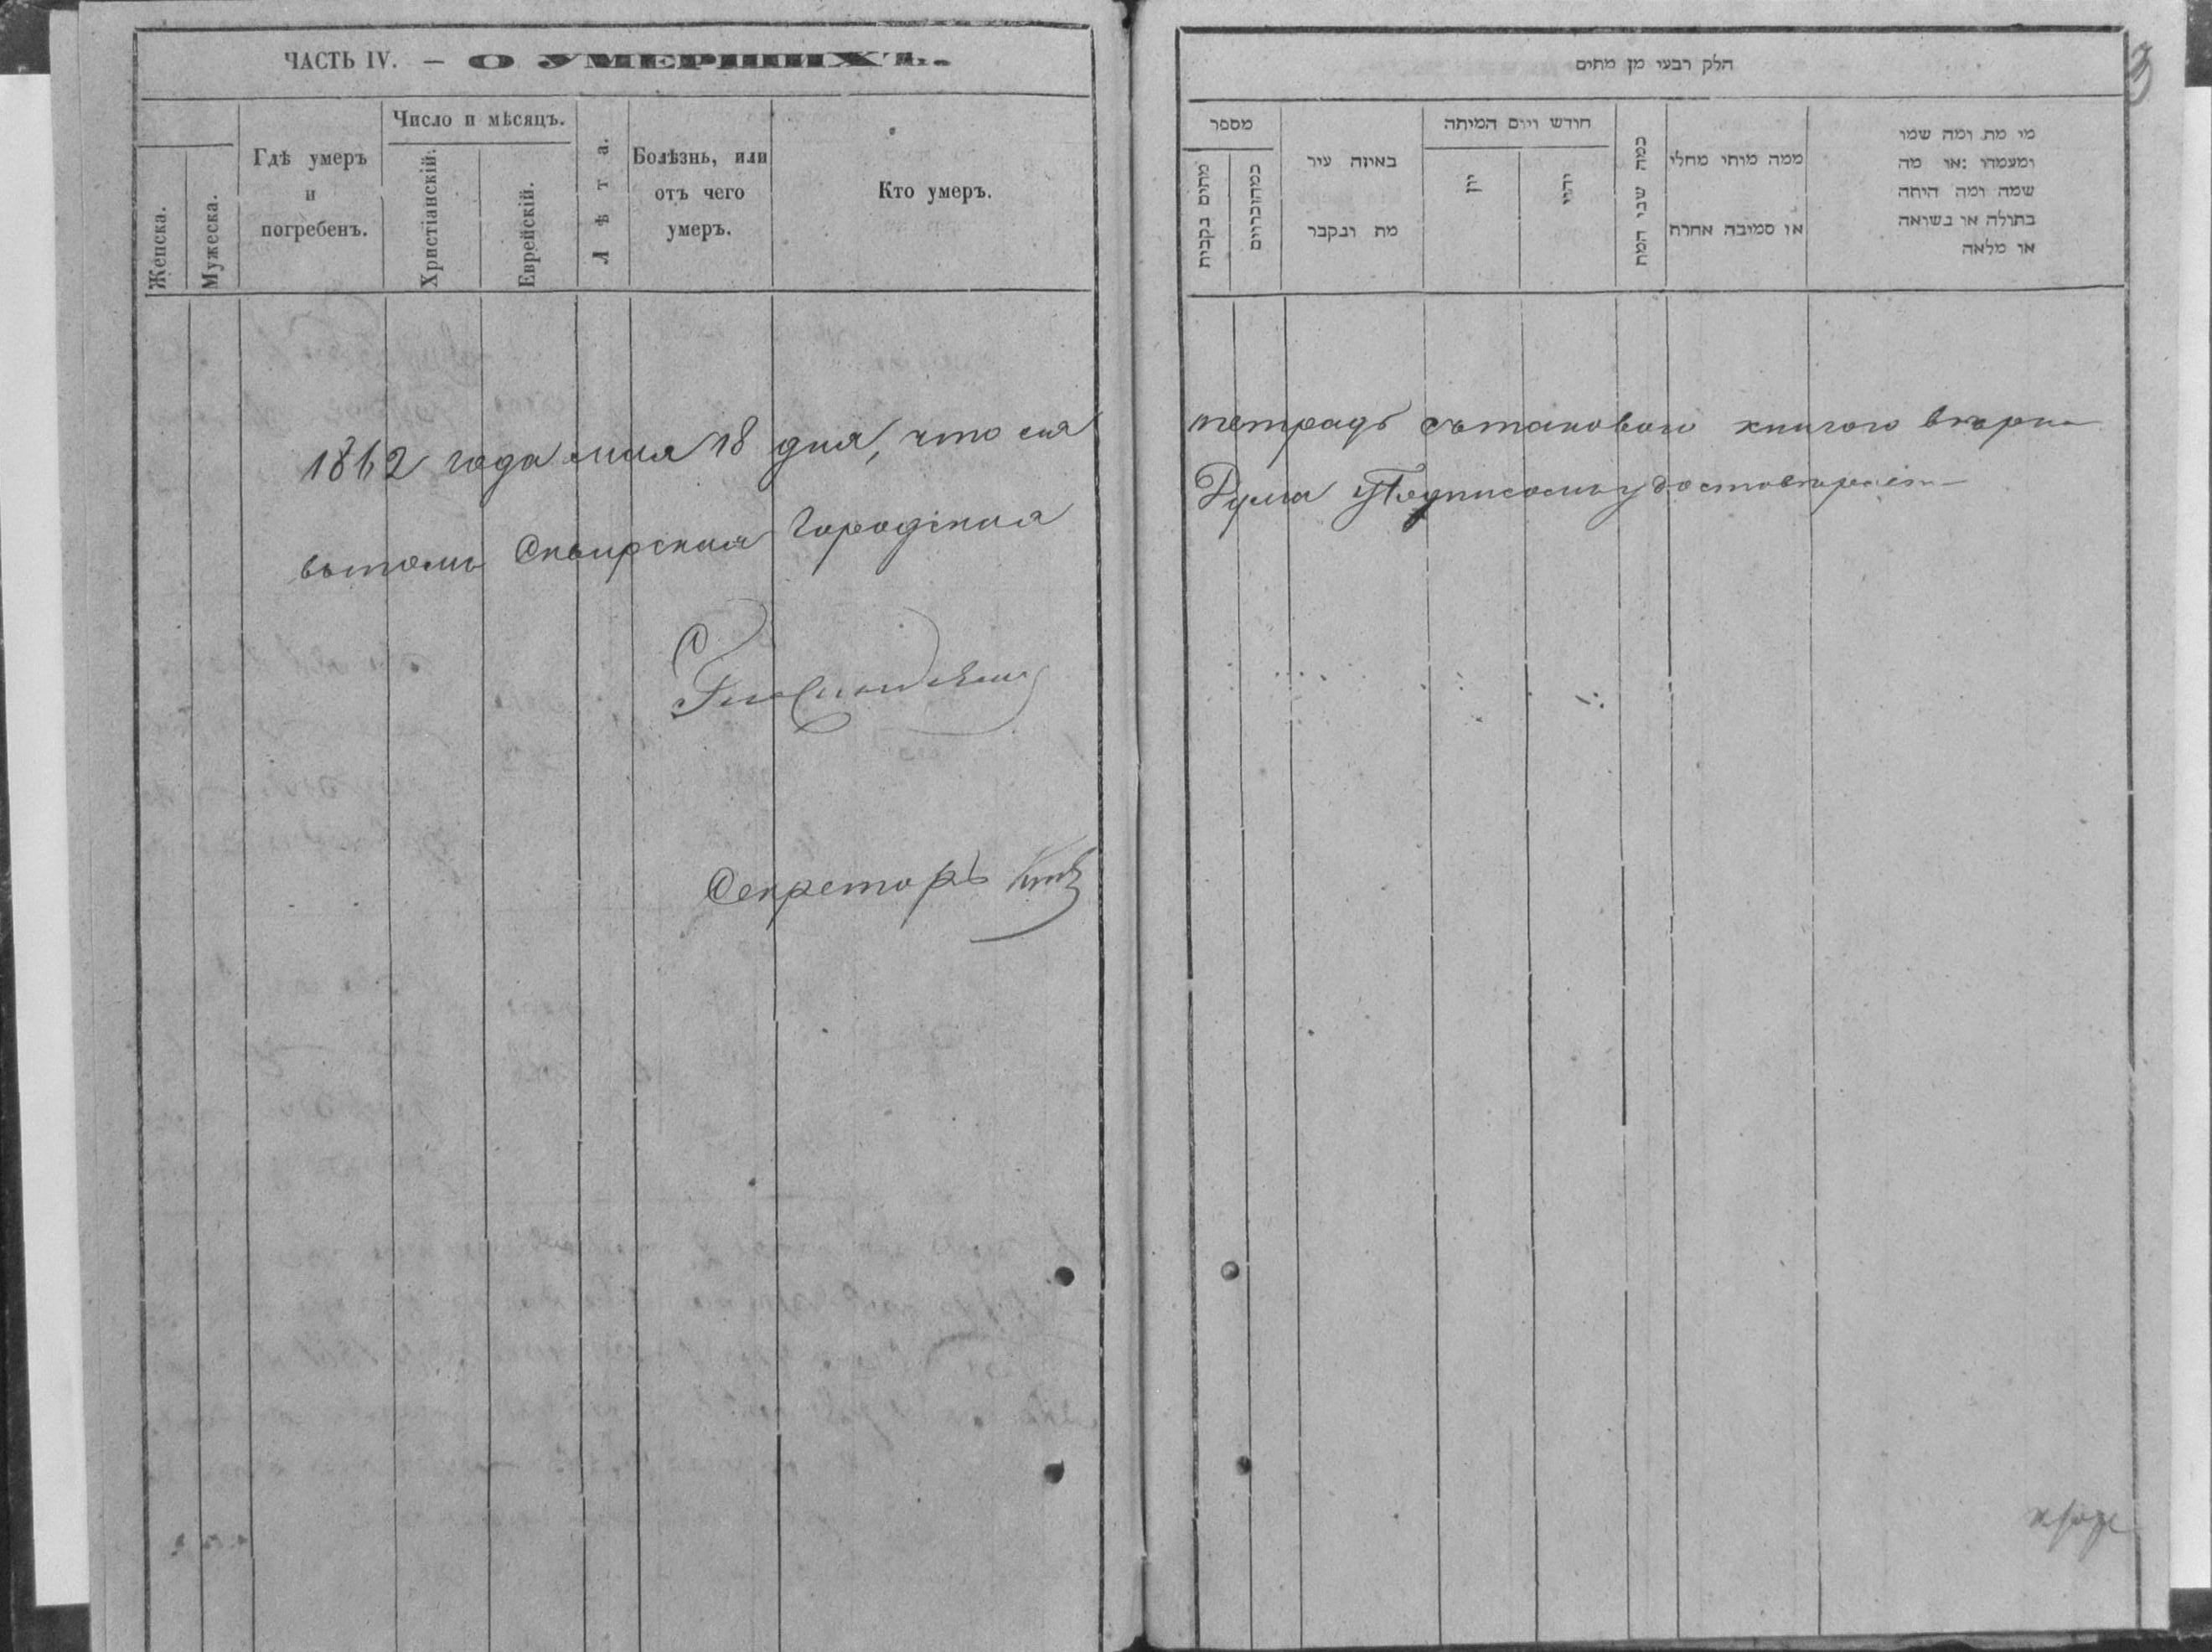 ЧАСТЬ IV. — О УМЕРШИХЪ.
Женска.
Мужеска.
Гдѣ умеръ
и
погребенъ.
Число и мѣсяцъ.
Христіанскій.
Еврейскій.
Лѣта.
Болѣзнь, или
отъ чего
умеръ.
Кто умеръ.
1862 года мая 18 дня, что сія
вътомъ Сквирская Городская
Секретарь
חלק רבעי מן מתים
3
מספר
חודש ויום המיתה
באיזה עיר
מת ונקבר
כמה שני המת
ממה מותו מחלי
או סמיבה אחרת
מי מת ומה שמו
ומעמדו :או מה
שמה ומה היתה
בתולה או נשואה
או מלאה
тетрадь сътаковою книгою вѣрна
Дума Подписомъ удостовѣряетъ